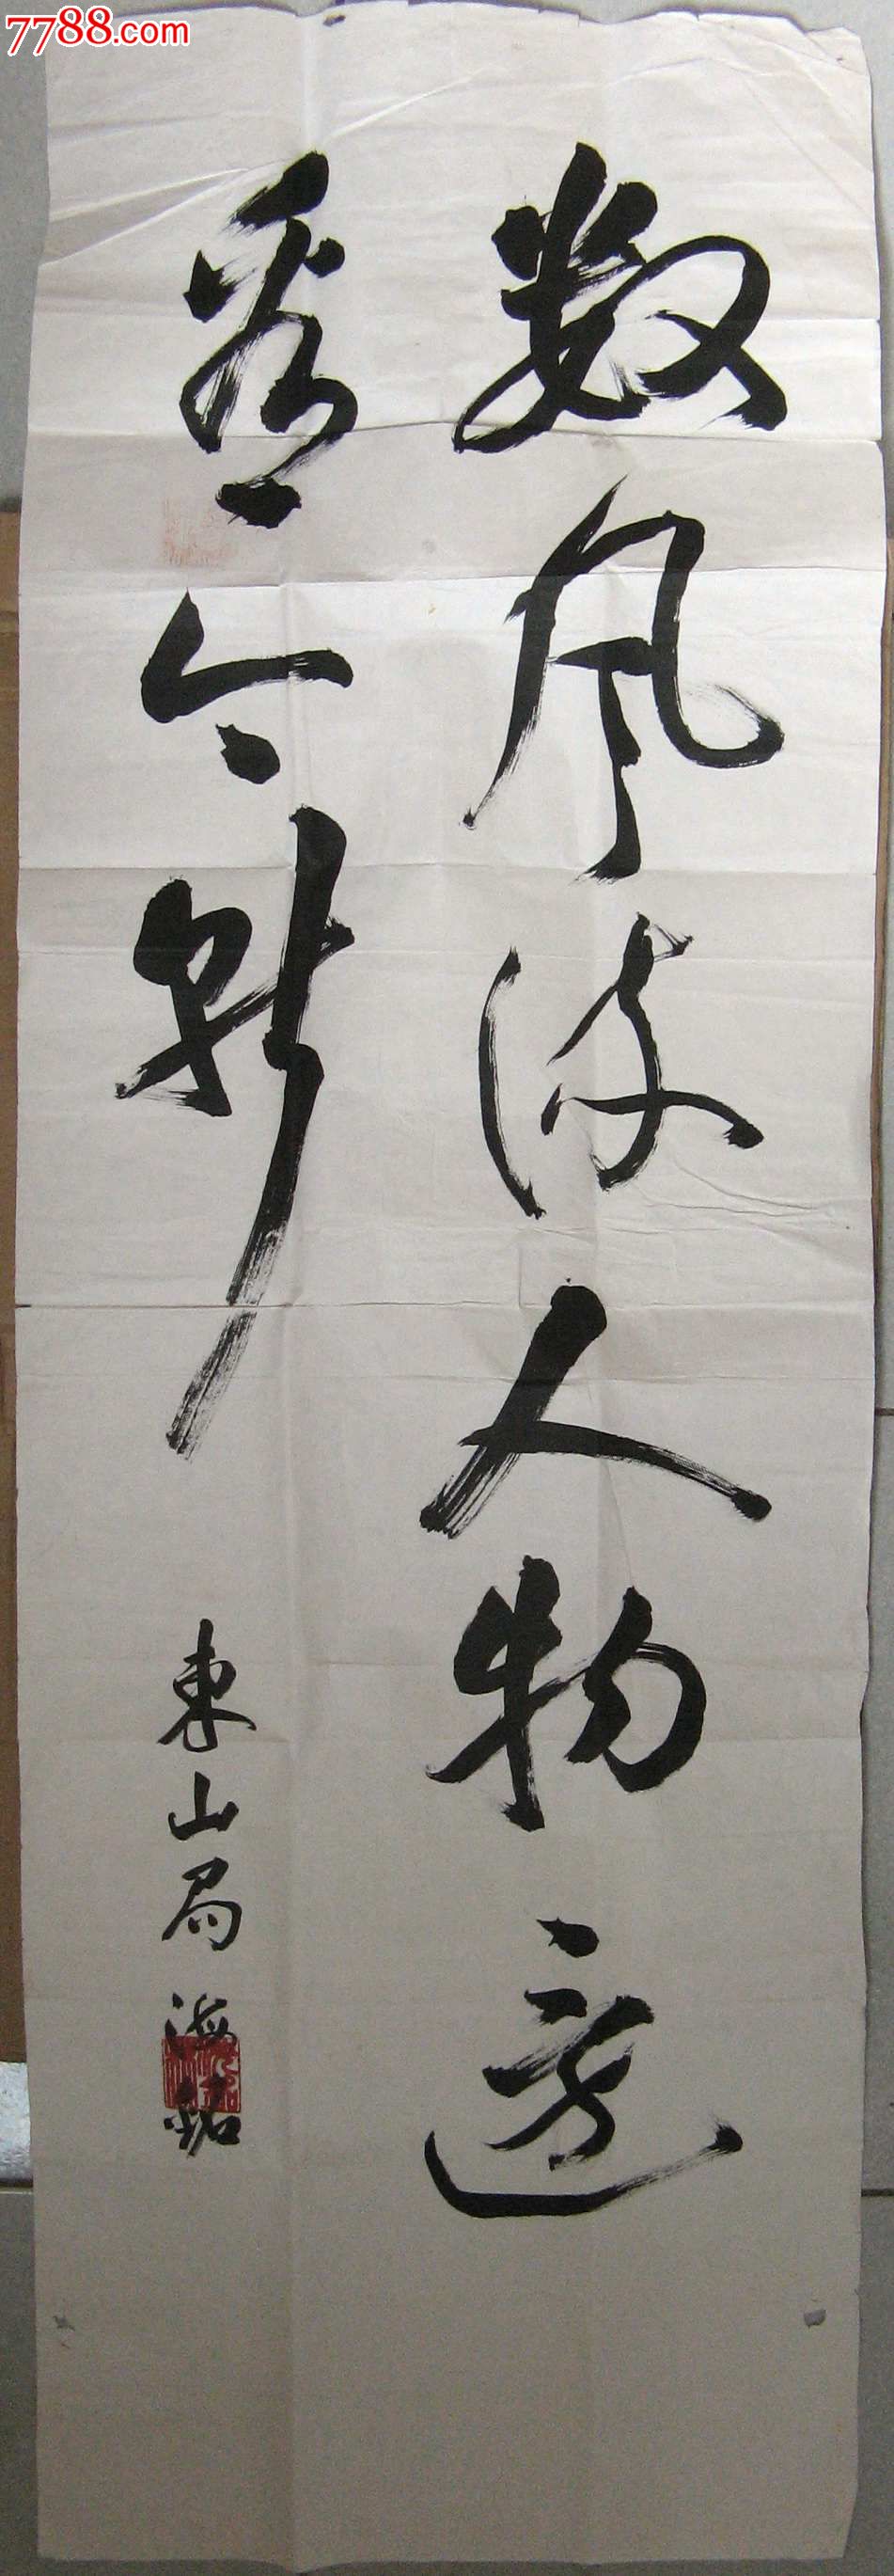 7788.com
数风流人物还
看今朝
東山局海銘